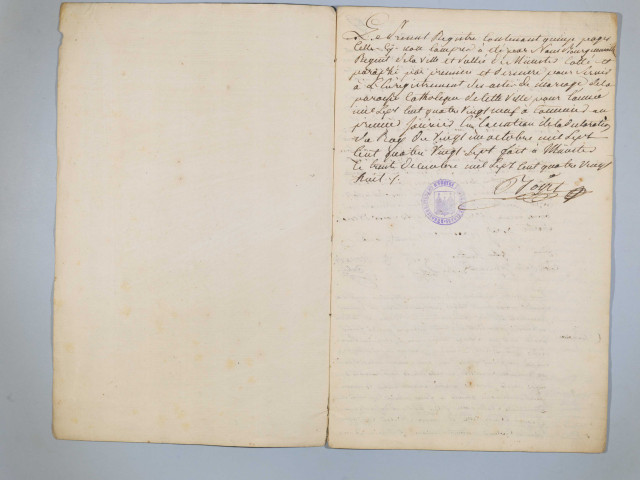 Le Present Registre Contenant quinze pages
Celle-Cy non Comprise a été par Nous Bourguemaitre
Regent de la Ville et Vallée de Munster Cotté et
paraphé par premiere et derniere pour servir
à L'Enregistrement des actes de mariage de la
paroisse Catholique de Cette Ville pour l'année
mil Sept Cent quatre vingt neuf à Commencer au
premier Janvier En Execution de la declaration
du Roy du Vingt un octobre mil Sept
Cent quatre Vingt-Sept fait à Munster
Le trente Decembre mil Sept Cent quatre Vingt
huit ./.